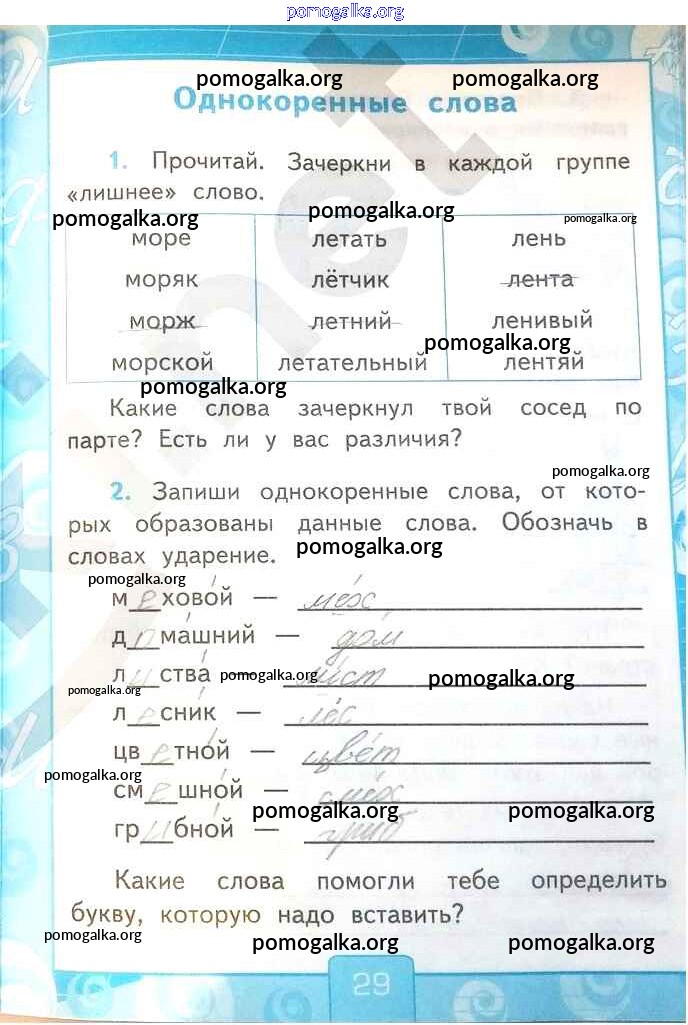 pomogalka.org
pomogalka.org pomogalka.org
Однокоренные слова
1. Прочитай. Зачеркни в каждой группе
«лишнее» слово.
pomogalka.org pomogalka.org pomogalka.org
море летать лень
моряк лётчик лента
морж летний ленивый
pomogalka.org
морской летательный лентяй
pomogalka.org
Какие слова зачеркнул твой сосед по
парте? Есть ли у вас различия?
pomogalka.org
2. Запиши однокоренные слова, от кото-
рых образованы данные слова. Обозначь в
словах ударение.
pomogalka.org
pomogalka.org
меховой — мех
домашний — дом
листва — лист
pomogalka.org pomogalka.org
pomogalka.org
лесник — лес
цветной — цвет
pomogalka.org
смешной — смех
pomogalka.org pomogalka.org
грибной — гриб
Какие слова помогли тебе определить
букву, которую надо вставить?
pomogalka.org pomogalka.org pomogalka.org
29